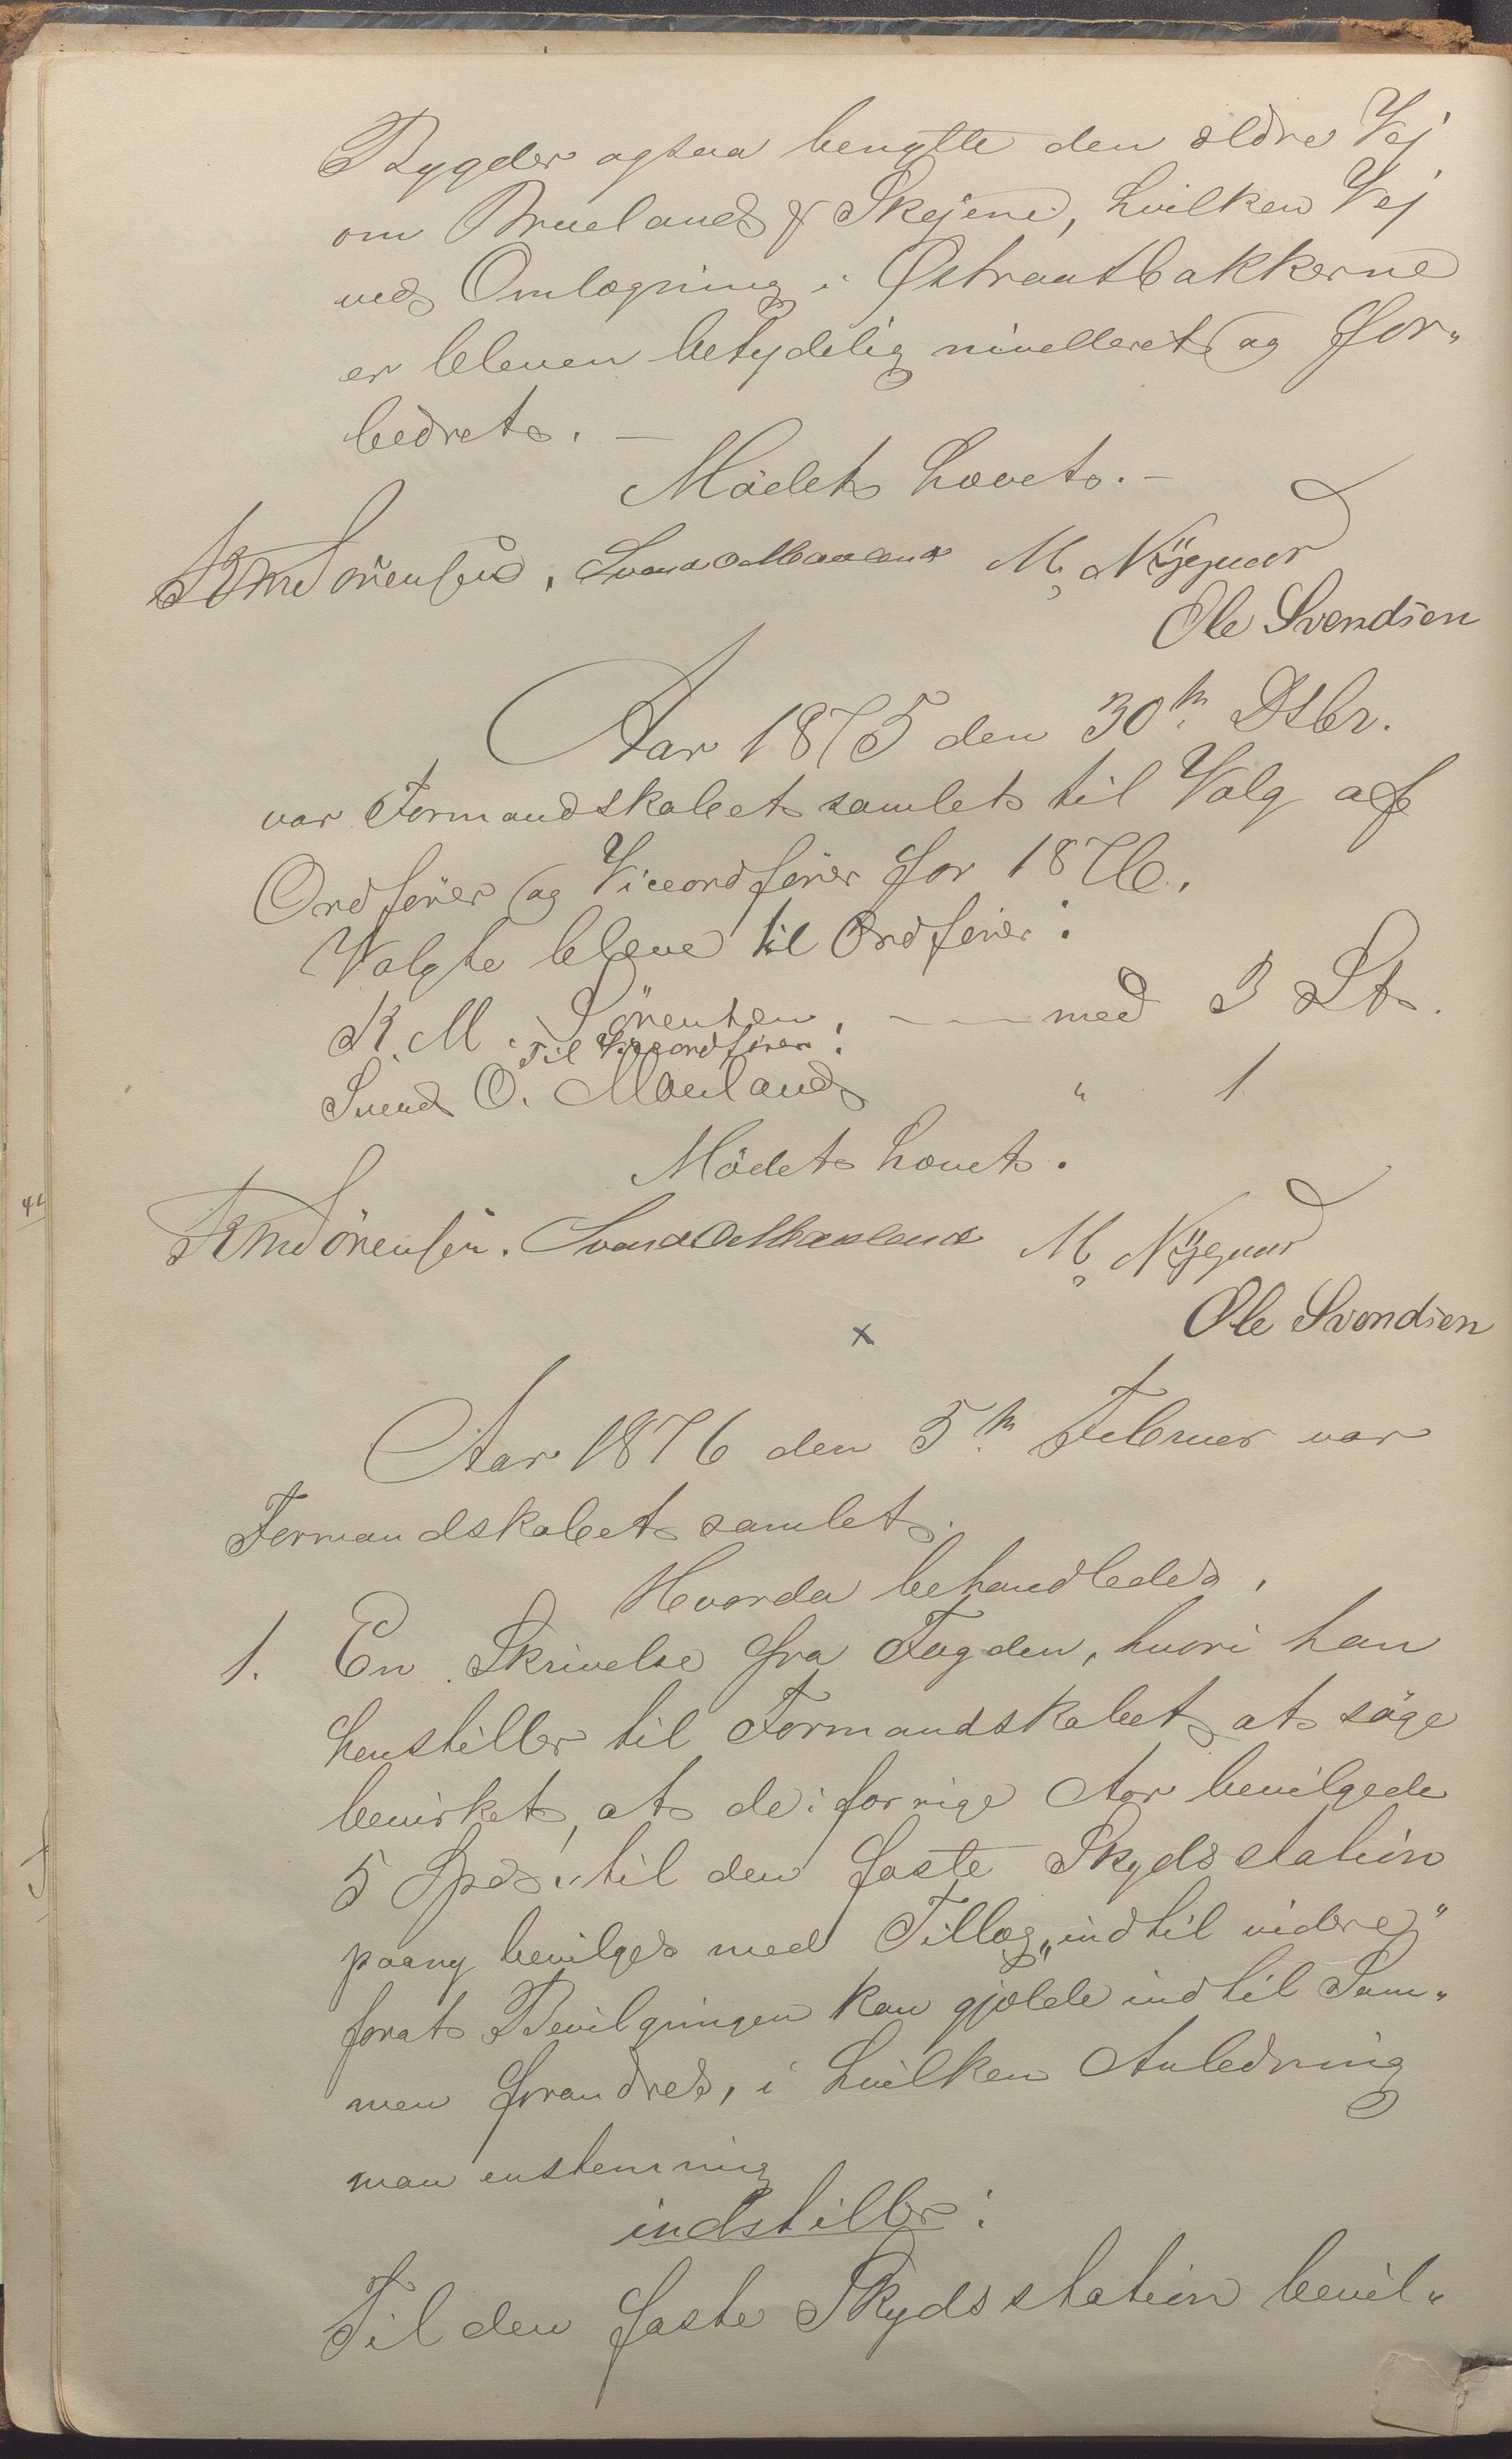 Bygder ogsaa benytte den ældre Vej
om Brueland & Skejene, hvilken Vej
ved Omlægning i Østraatbakkerne
er bleven betydelig nivelleret og for„
bedret. —
Mödet hævet. —
KMSörensen. Svend O Maaland M. Nÿgaard
Ole Svendsen
Aar 1875 den 30te Dsbr.
var Formandskabet samlet til Valg af
Ordförer og Viceordförer for 1876.
Valgte bleve til Ordförer:
K. M. Sörensen. — med 3 St.
Til Viceordförer:
Svend O. Maaland " 1
Mödet hævet.
KMSörensen. Svend O Maaland M. Nÿgaard
Ole Svendsen
x
Aar 1876 den 5te Februar var
Formandskabet samlet.
Hvorda behandledes.
1. En Skrivelse fra Fogden, hvori han
henstiller til Formandskabet at söge
bevirket, at de i forrige Aar bevilgede
5 Spd. til den faste Skydsstation
paany bevilges med Tillæg „indtil videre”
forat Bevilgningen kan gjælde indtil Sum„
men forandres, i hvilken Anledning
man enstemmig
indstiller:
Til den faste Skydsstation bevil„